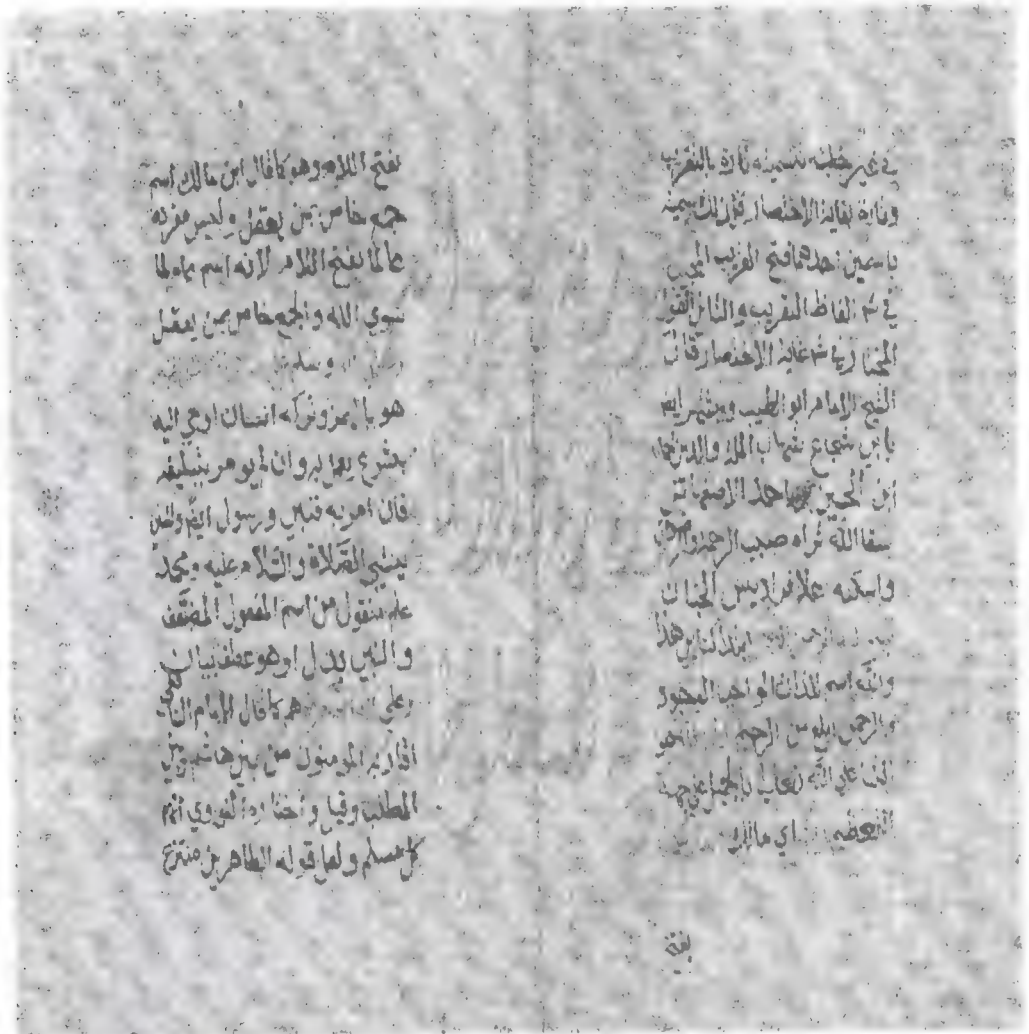 في غير خطبه تسميته تارة بالتقريب
وتارة بغاية الاختصار فلذلك سميته
باسمين احدهما فتح القريب المجيب
في شرح الفاظ التقريب والثاني القول
المختار في شرح غاية الاختصار قال
الشيخ الامام ابو الطيب ويشتهر ايضا
بابي شجاع شهاب الملة والدين
ابن الحسين بن احمد الاصفهاني
سقا الله ثراه صبيب الرحمة
واسكنه اعلا فراديس الجنان
بسم الله الرحمن الرحيم ابتدا كتابي هذا
والله اسم للذات الواجب الوجود
والرحمن ابلغ من الرحيم الحمد هو
الثنا على الله تعالى بالجميل على جهة
التعظيم اي مالك
بفتح
بفتح اللام وهو كما قال ابن مالك اسم
جمع خاص بمن يعقل وليس مفرده
عالما بفتح اللام لانه اسم عام لما
سوي الله والجمع خاص بمن يعقل
وسلم
هو بالهمز وتركه انسان اوحي اليه
بشرع يعمل به وان لم يومر بتبليغه
فان امر به فنبي ورسول ايضا والمعنى
ينشي الصلاة والسلام عليه ومحمد
علم منقول من اسم المفعول المضعف
والنبي بدل او هو عطف بيان
وعلي هم كما قال الامام
اقاربه المومنون من بني هاشم وبني
المطلب وقيل واختاره النووي انهم
كل مسلم ولعل قوله الطاهرين منتزع